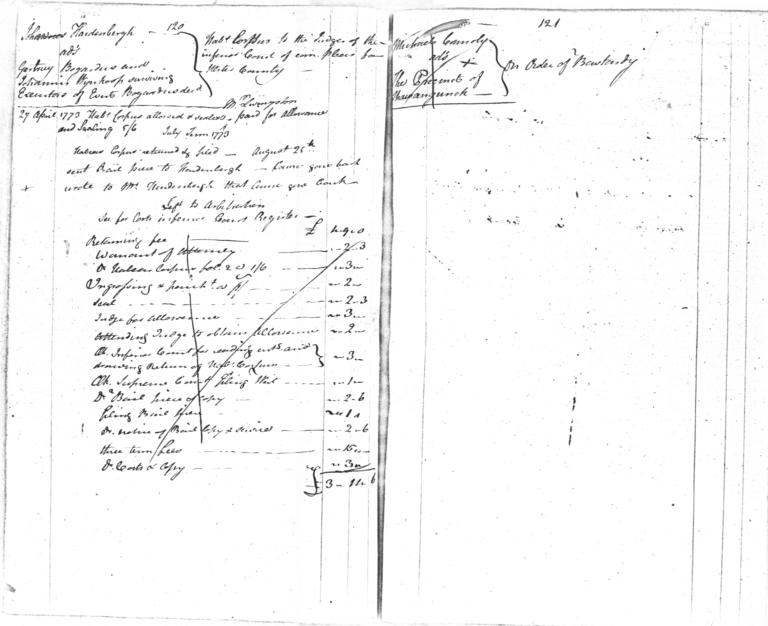 120
Hardenbergh
ads
Gertney Bogardus and
Wynkoop surviving
Executors of Evert Bogardus decd
Habs Corpus to the Judges of the
inferior Court of com. pleas for
Ulster County —
Mr Livingston
27 April 1773 Habs Corpus allowed & sealed — paid for allowance
and Sealing 5/6
July Term 1773
Habeas Corpus returned & filed — August 25th
sent Bail piece to Hardenbergh — Cause gone back
+ wrote to Mr Hardenbergh that Cause gone back
left to Arbitration
See for Costs inferior Court Register —
£ 4"9"0
Returning fee
Warrant of Attorney " 2 " 3
Dr Habeas Corpus fol. 2 @ 1/6 " 3 "
Ingrossing & parcht. " 2 "
Seal " 2 " 3
Judge for allowance " 3 "
Attending Judge to obtain allowance " 2 "
Clk. Inferior Court for sending and
drawing Return of Hab. Corpus " 3 "
Clk. Supreme Court filing Writ " 1 "
Dr Bail piece & Copy " 2 " 6
filing Bail piece " 1 "
Dr notice of Bail Copy & service " 2 " 6
three term fees " 15 "
Dr Costs & Copy " 3 "
£ 3 " 6
121
Michael Connoly
ads +
The Precinct of
Shawangunck —
On Order of Bastardy